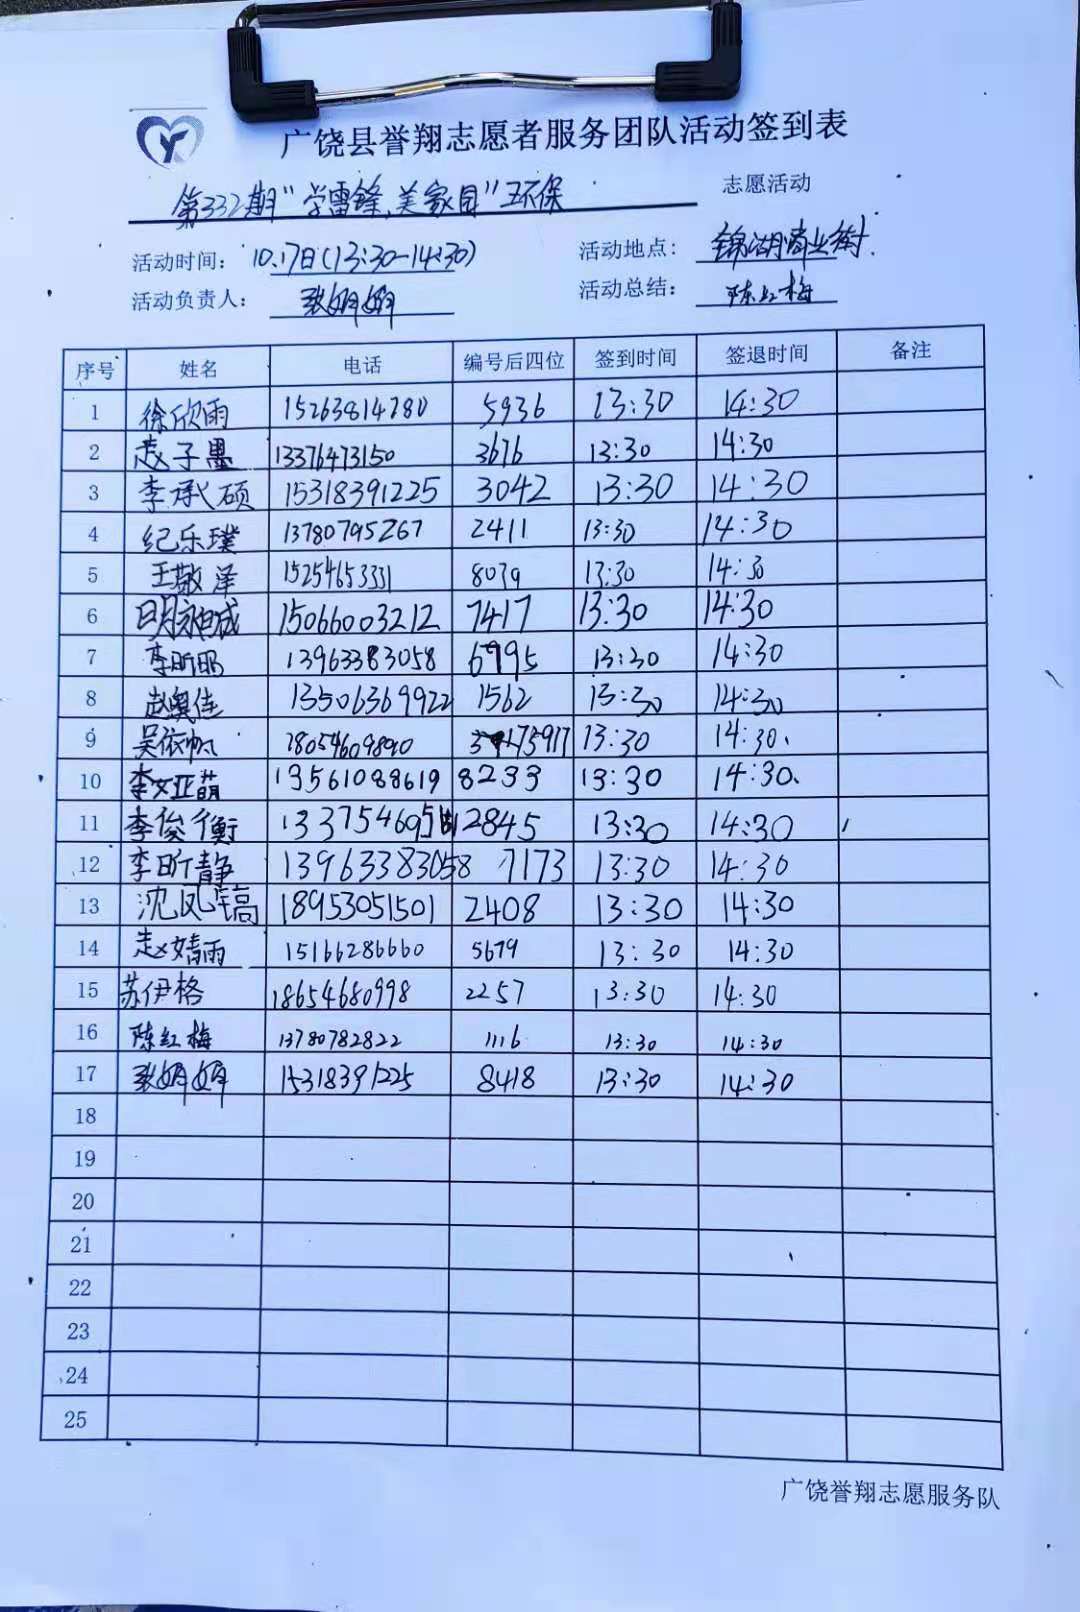 广饶县誉翔志愿者服务团队活动签到表
第332期“学雷锋、美家园”环保 志愿活动
活动时间: 10.17日(13:30-14:30) 活动地点: 锦湖商业街.
活动负责人: 娟娟 活动总结: 陈红梅
序号 姓名 电话 编号后四位 签到时间 签退时间 备注
1 徐欣雨 15263814780 5936 13:30 14:30
2 赵子墨 13376473150 3676 13:30 14:30
3 李承硕 15318391225 3042 13:30 14:30
4 纪乐璞 13780795267 2411 13:30 14:30
5 王敬泽 15254653331 8039 13:30 14:30
6 15066003212 7417 13:30 14:30
7 李昕明 13963383058 6995 13:30 14:30
8 赵奥佳 13506369922 1562 13:30 14:30
9 吴依帆 18054609890 5917 13:30 14:30
10 13561088619 8233 13:30 14:30
11 李俊衡 2845 13:30 14:30
12 李昕静 13963383058 7173 13:30 14:30
13 沈凤镐 18953051501 2408 13:30 14:30
14 赵婧雨 15166286660 5679 13:30 14:30
15 苏伊格 18654680998 2257 13:30 14:30
16 陈红梅 13780782822 1116 13:30 14:30
17 娟娟 15318391225 8418 13:30 14:30
18
19
20
21
22
23
24
25
广饶誉翔志愿服务队